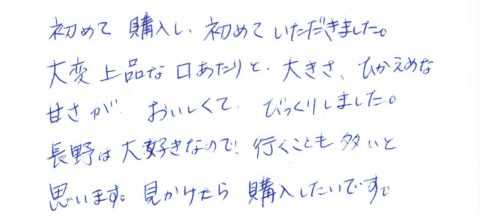 初めて 購入し、初めて いただきました。
大変 上品な 口あたりと、大きさ、ひかえめな
甘さが おいしくて、びっくりしました。
長野は大好きなので、行くことも 多いと
思います。見かけたら 購入したいです。